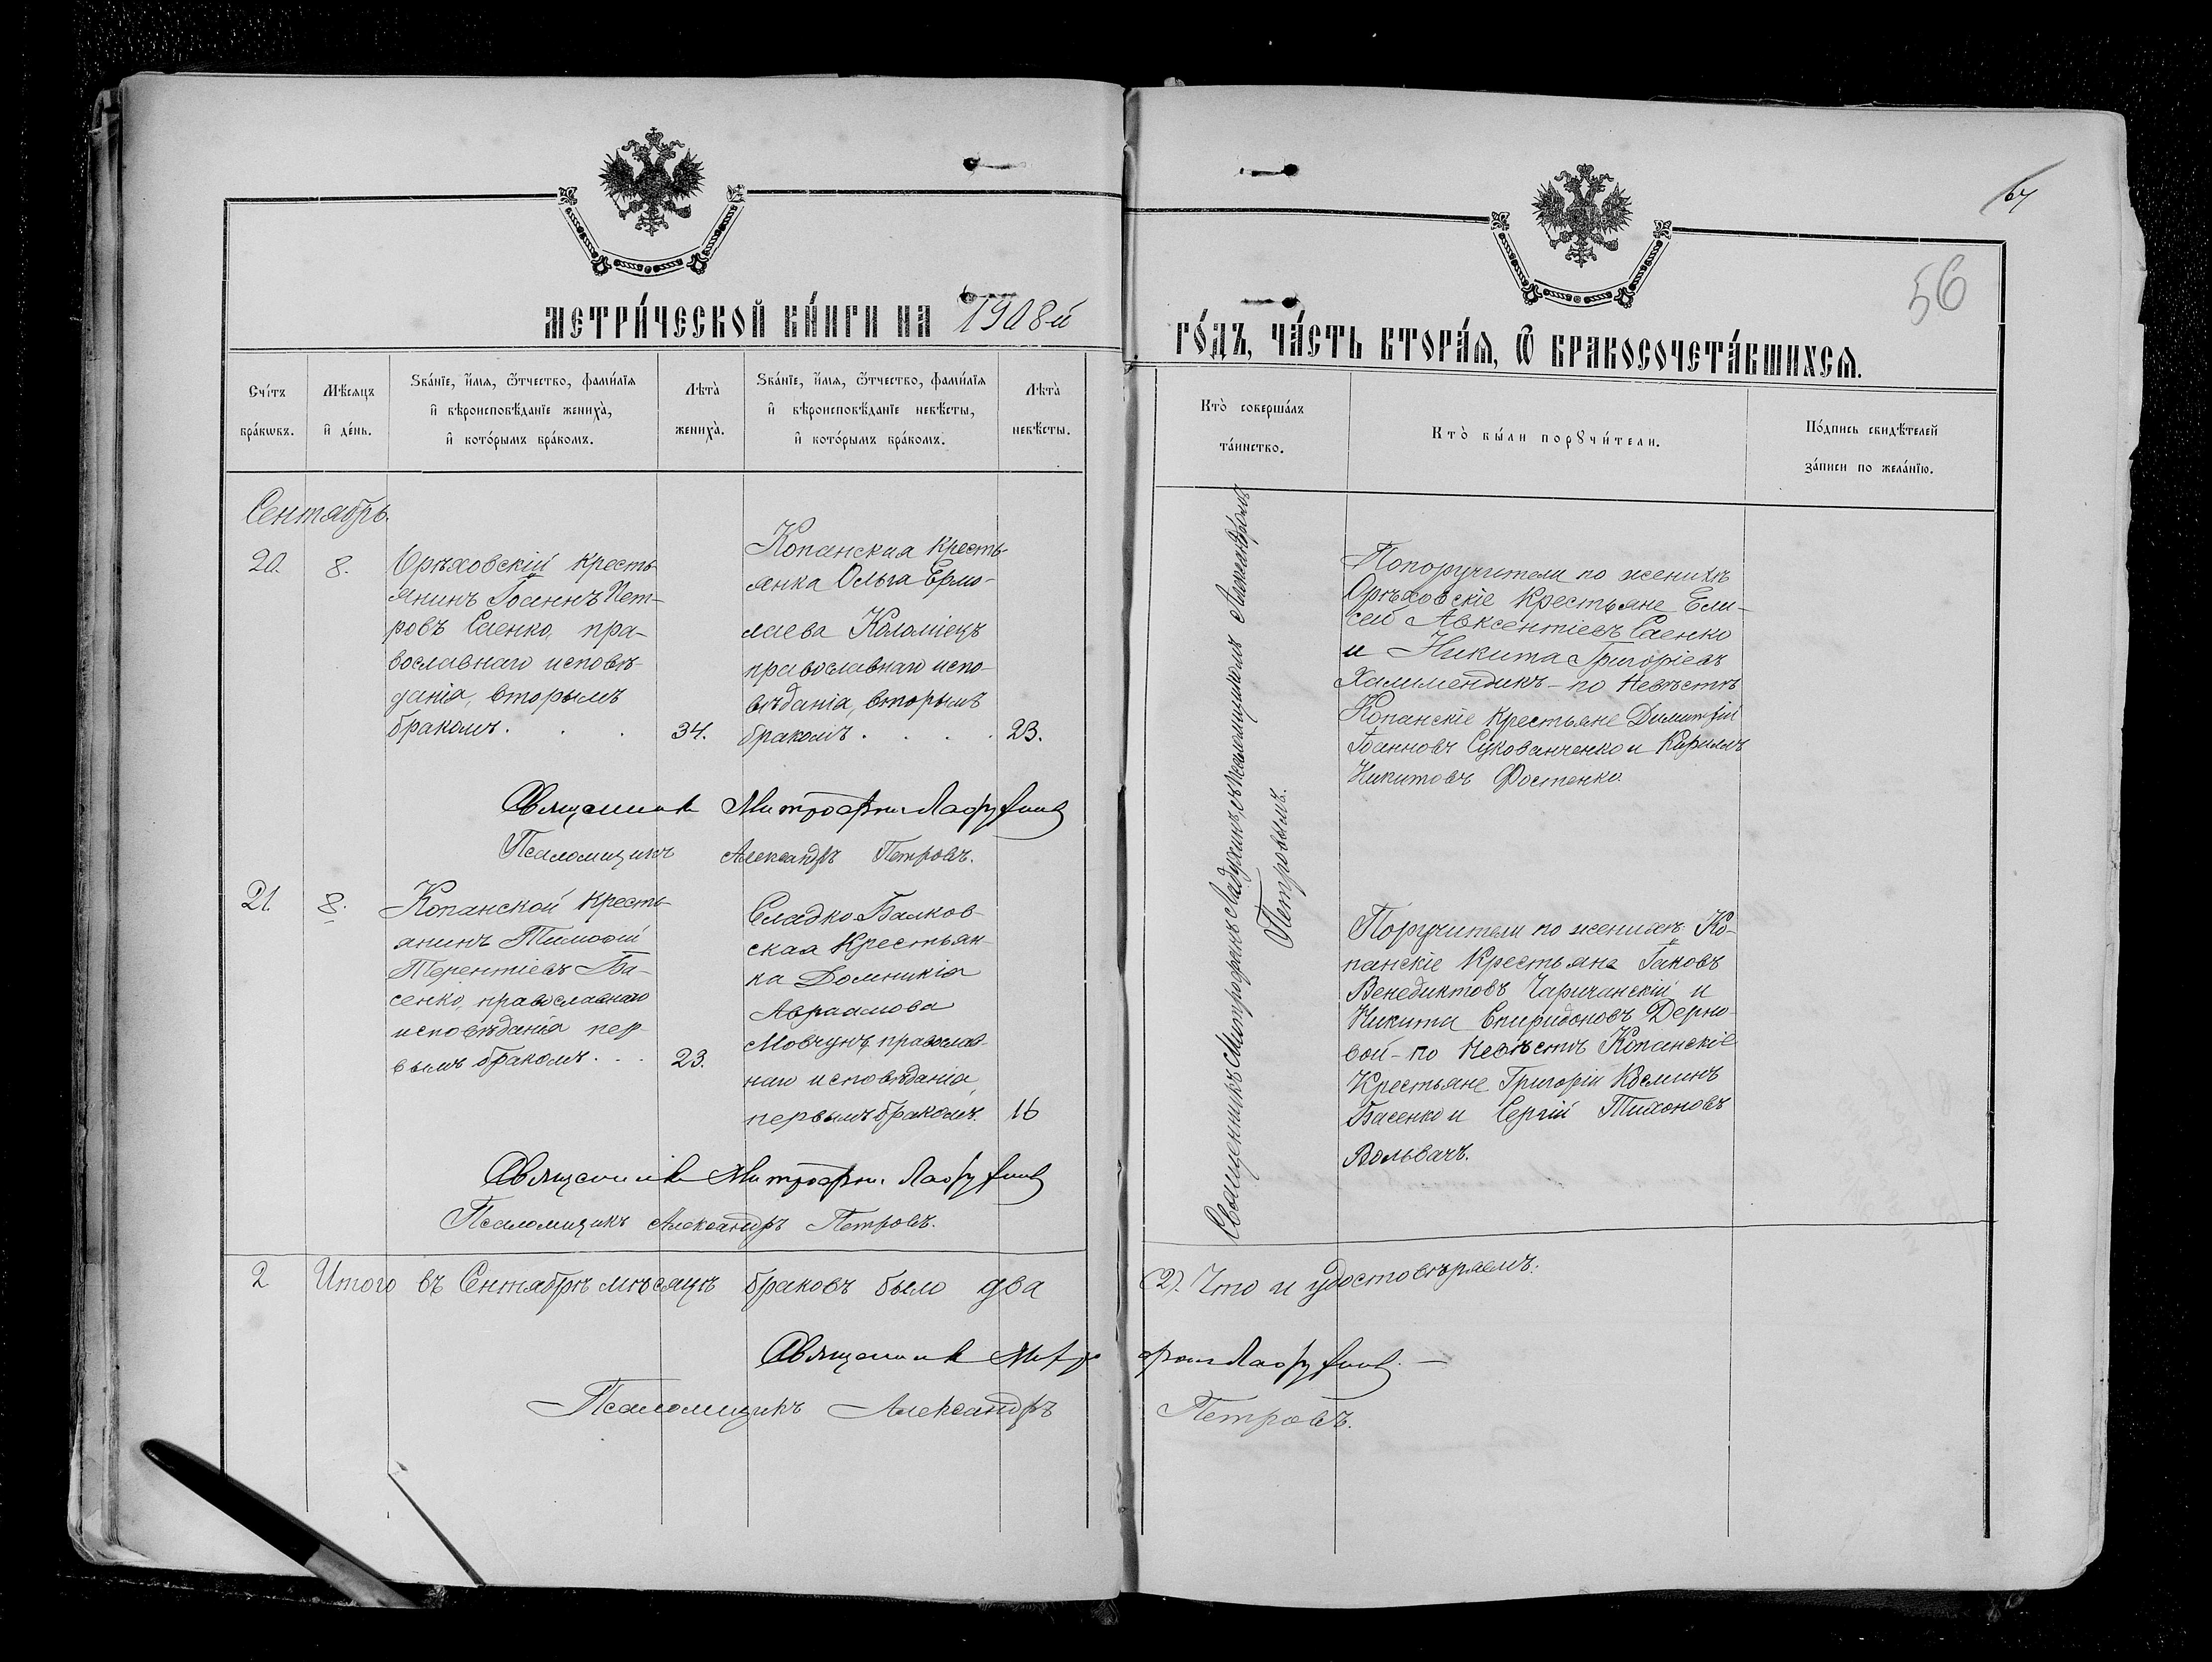 64
56
МЕТРИ́ЧЕСКОЙ КНИ́ГИ НА 1908й
ГО́ДЪ, ЧА́СТЬ ВТОРА́Я, Ѿ БРАКОСОЧЕТА́ВШИХСЯ.
Сче́тъ бра́кωвъ.
Мѣ́сяцъ и҆ де́нь.
Зва́нїе, и҆́мя, ѻ҆́тчество, фами́лїя
и҆ вѣроисповѣ́данїе жениха̀,
и҆ кото́рымъ бра́комъ.
Лѣта̀
жениха̀.
Зва́нїе, и҆́мя, ѻ҆́тчество, фами́лїя
и҆ вѣроисповѣ́данїе невѣ́сты,
и҆ кото́рымъ бра́комъ.
Лѣта̀
невѣ́сты.
Кто̀ соверша́лъ
та́инство.
Кто̀ бы́ли порꙋчи́тели.
По́дпись свидѣ́телей
за́писи по жела́нїю.
Сентябрь.
20.
8.
Орѣховскій кресть-
янинъ Іоаннъ Пет-
ровъ Саенко, пра-
вославнаго исповѣ-
данія, вторымъ
бракомъ . . .
34.
Копанская кресть-
янка Ольга Ермо-
лаева Коломіецъ
православнаго испо-
вѣданія, вторымъ
бракомъ . . . .
23.
Священникомъ Митрофаномъ Ладухинымъ съ псаломщикомъ Александромъ
Петровымъ.
Попоручители по женихѣ
Орѣховскіе крестьяне Ели-
сей Авксентіевъ Саенко
и Никита Григоріевъ
Халимендикъ - по невѣстѣ
Копанскіе крестьяне Димитрій
Іоанновъ Сукованченко и Кириллъ
Никитовъ Фостенко.
Священникъ Митрофанъ
Псаломщикъ Александръ Петровъ.
21.
8.
Копанской кресть-
янинъ Тимофій
Терентіевъ Ба-
сенко, православнаго
исповѣданія пер-
вымъ бракомъ . . .
23.
Сладко-Балков-
ская крестьян-
ка Домникія
Авраамова
Мовчунъ, православ-
наго исповѣданія,
первымъ бракомъ.
16
Поручители по женихѣ: Ко-
панскіе крестьяне Іаковъ
Венедиктовъ Чаричанскій и
Никита Спиридоновъ Дерно-
вой - по невѣстѣ Копанскіе
крестьяне Григорій Косминъ
Басенко и Сергій Тихоновъ
Вольвачъ.
Священникъ Митрофанъ
Псаломщикъ Александръ Петровъ.
2 Итого въ Сентябрѣ мѣсяцѣ браковъ было два (2). Что и удостовѣряемъ:
Священникъ Митрофанъ
Псаломщикъ Александръ Петровъ.